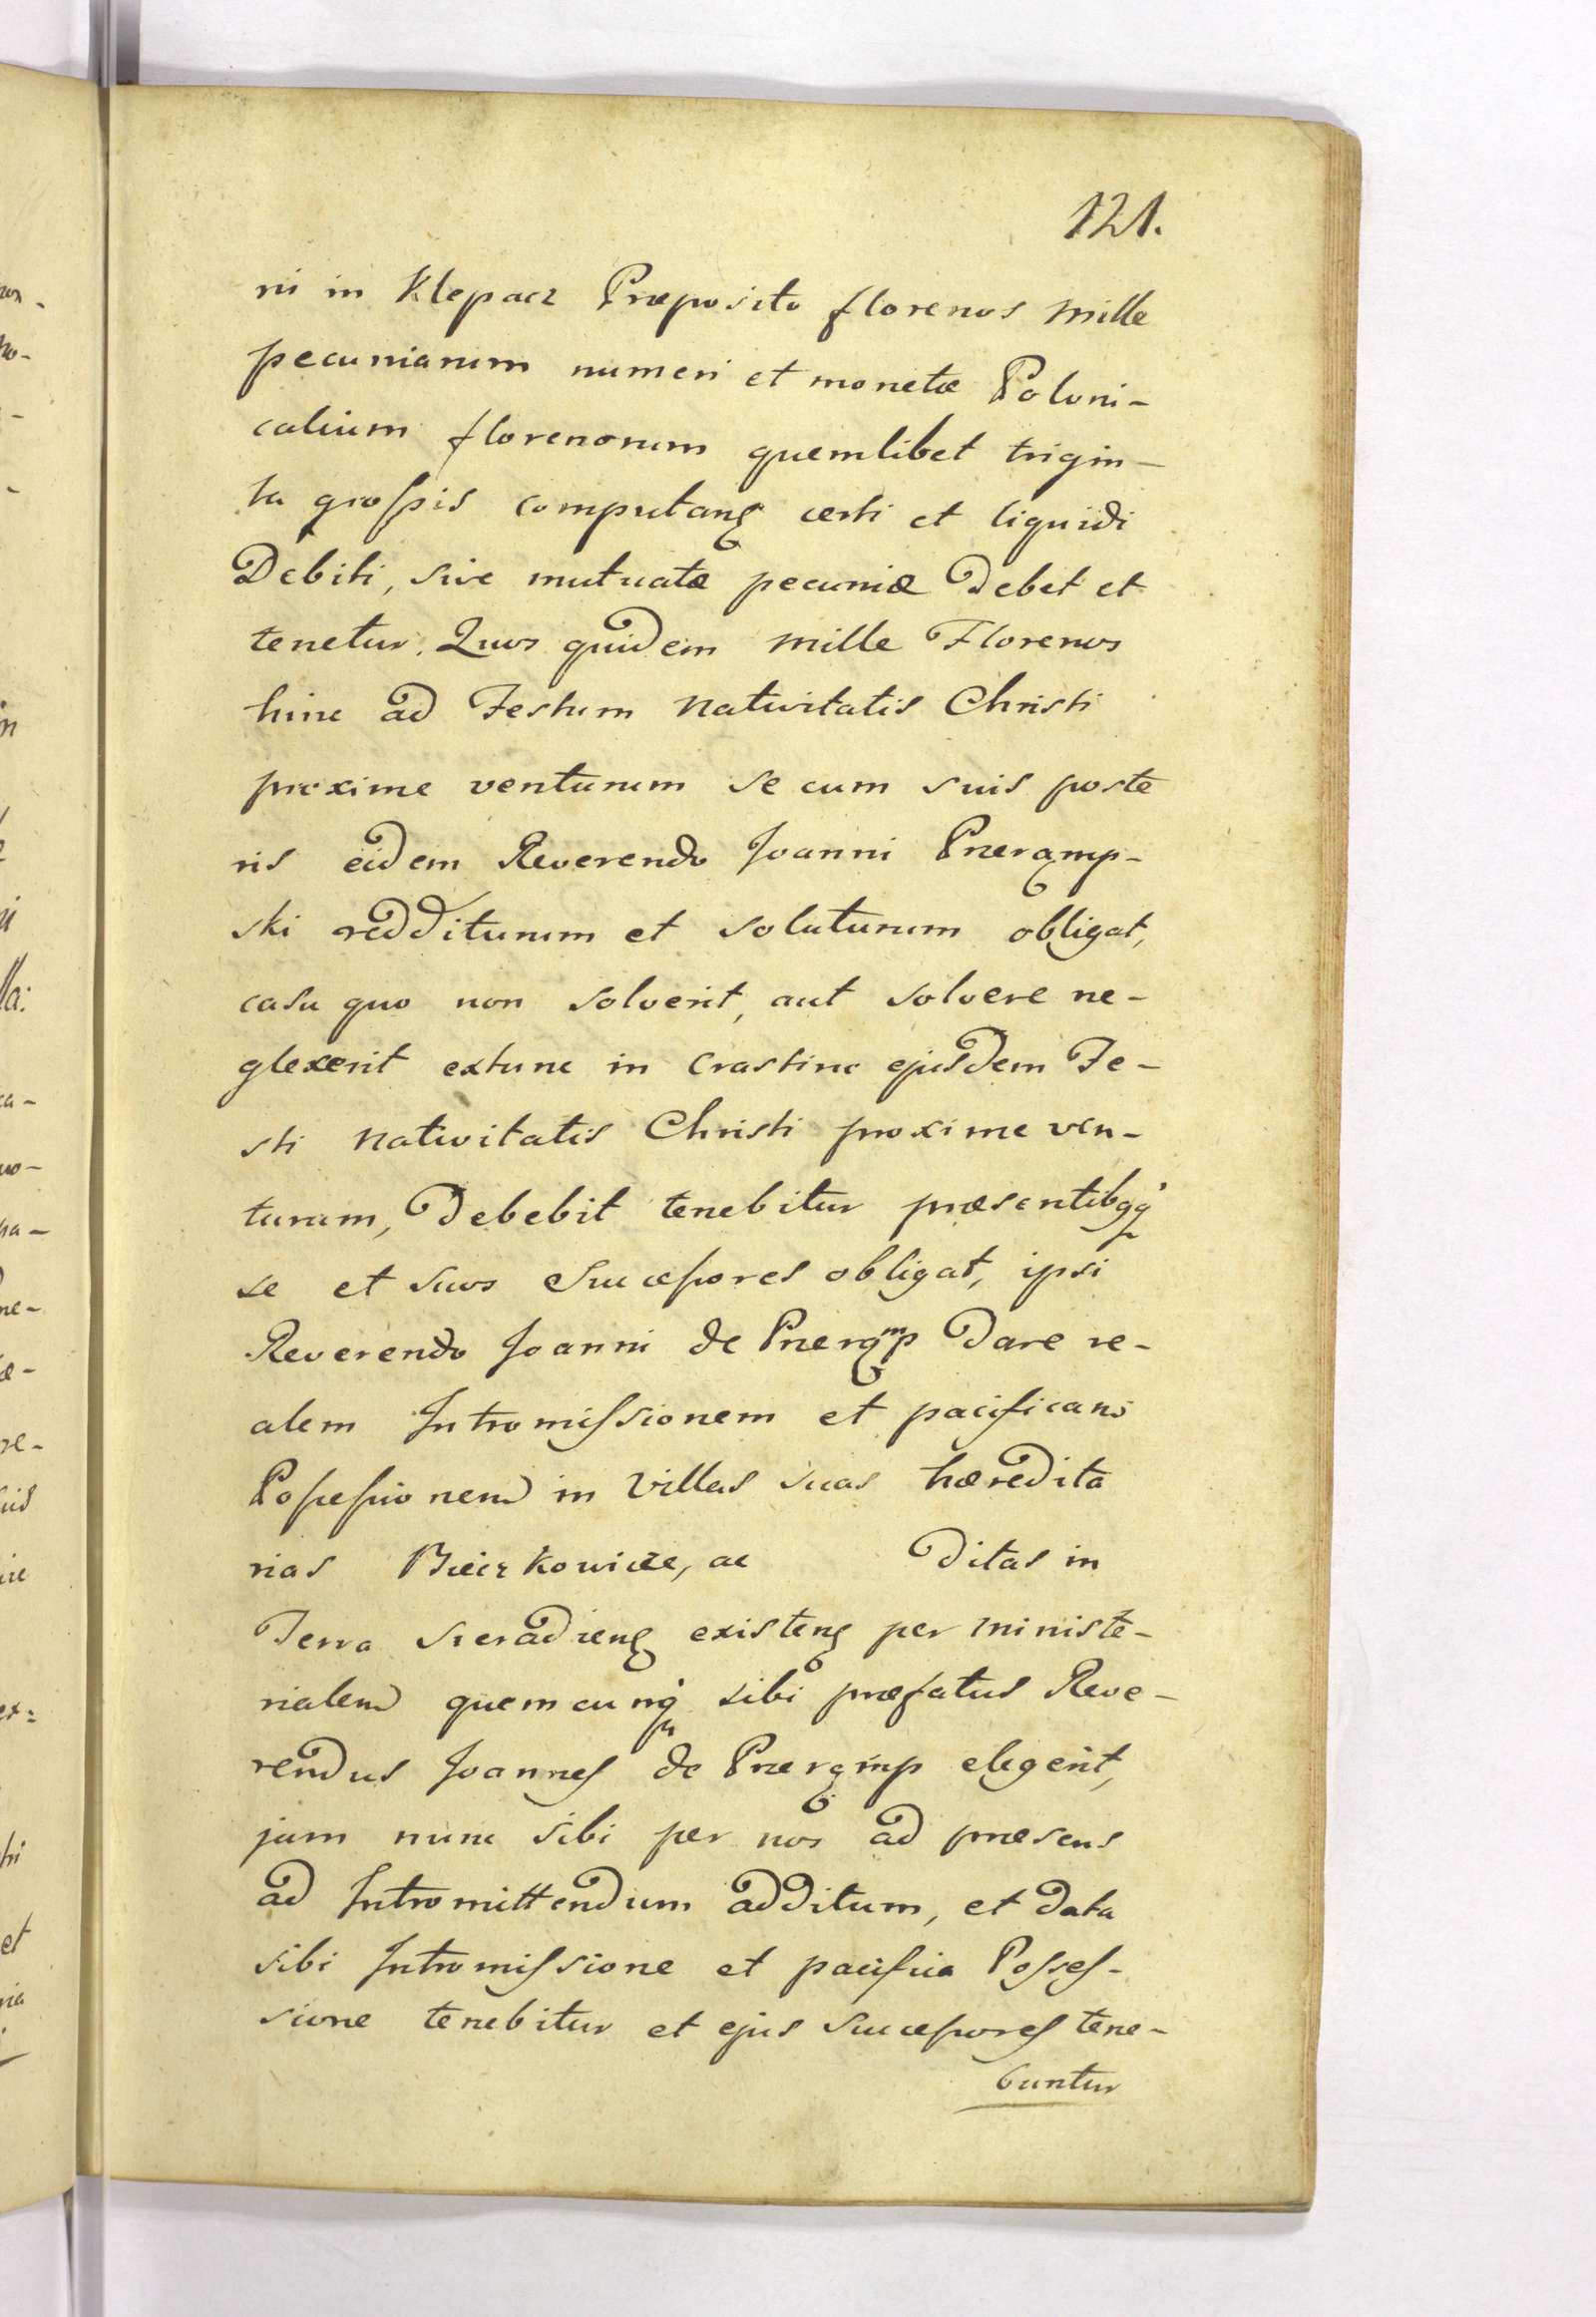 121.
ni in Klepacz Præposito florenos mille
pecuniarum numeri et monetæ Poloni-
calium florenorum quemlibet trigin-
ta grossis computanę certi et liquidi
Debiti, sive mutuatæ pecuniæ Debet et
tenetur. Quos quidem mille Florenos
hinc ad Festum Nativitatis Christi
proxime venturum se cum suis poste
ris eidem Reverendo Joanni Przerąmp-
ski redditurum et soluturum obligat,
casu quo non solverit, aut solvere ne-
glexerit extunc in Crastino ejusdem Fe-
sti Nativitatis Christi proxime ven-
turum, Debebit tenebitur præsentibqq
se et suos Successores obligat, ipsi
Reverendo Joanni de Przerąmp Dare re-
alem Intromissionem et pacificam
Possessionem in Villas suas hæredita
rias Bieczkowice, ac Ditas in
Terra Sieradienę existenę per ministe-
rialem quemcunq sibi præfatus Reve-
rendus Joannes de Przerąmp elegerit,
jam nunc sibi per nos ad præsens
ad Intromittendum additum, et data
sibi Intromissione et pacifica Posses-
sione tenebitur et ejus Successores tene-
buntur